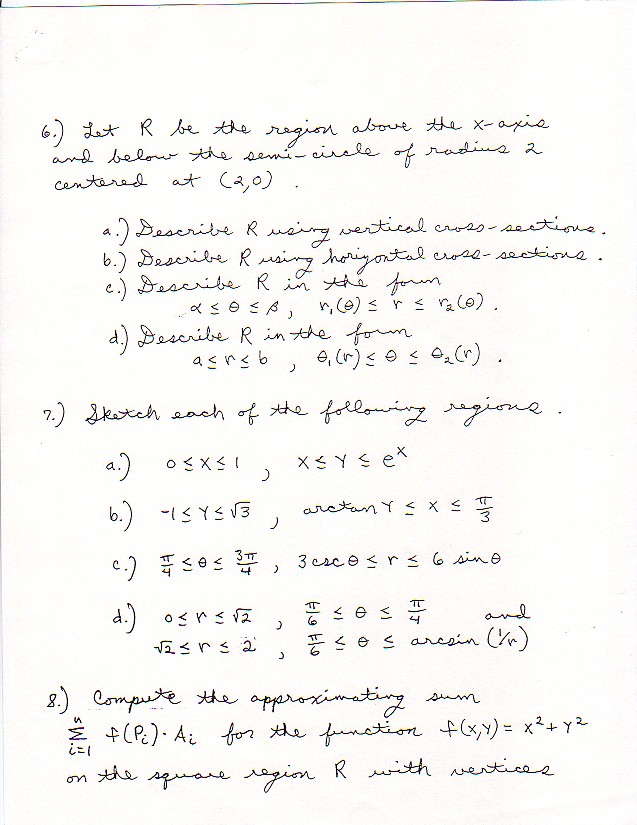 6.) Let R be the region above the x-axis
and below the semi-circle of radius 2
centered at (2,0) .
a.) Describe R using vertical cross-sections.
b.) Describe R using horizontal cross-sections.
c.) Describe R in the form
α ≤ θ ≤ β , r₁(θ) ≤ r ≤ r₂(θ) .
d.) Describe R in the form
a ≤ r ≤ b , θ₁(r) ≤ θ ≤ θ₂(r) .
7.) Sketch each of the following regions .
a.) 0 ≤ x ≤ 1 , x ≤ y ≤ eˣ
b.) -1 ≤ y ≤ √3 , arctan y ≤ x ≤ π/3
c.) π/4 ≤ θ ≤ 3π/4 , 3 csc θ ≤ r ≤ 6 sin θ
d.) 0 ≤ r ≤ √2 , π/6 ≤ θ ≤ π/4 and
√2 ≤ r ≤ 2 , π/6 ≤ θ ≤ arcsin (1/r)
8.) Compute the approximating sum
∑ⁿᵢ₌₁ f(Pᵢ)·Aᵢ for the function f(x,y) = x² + y²
on the square region R with vertices